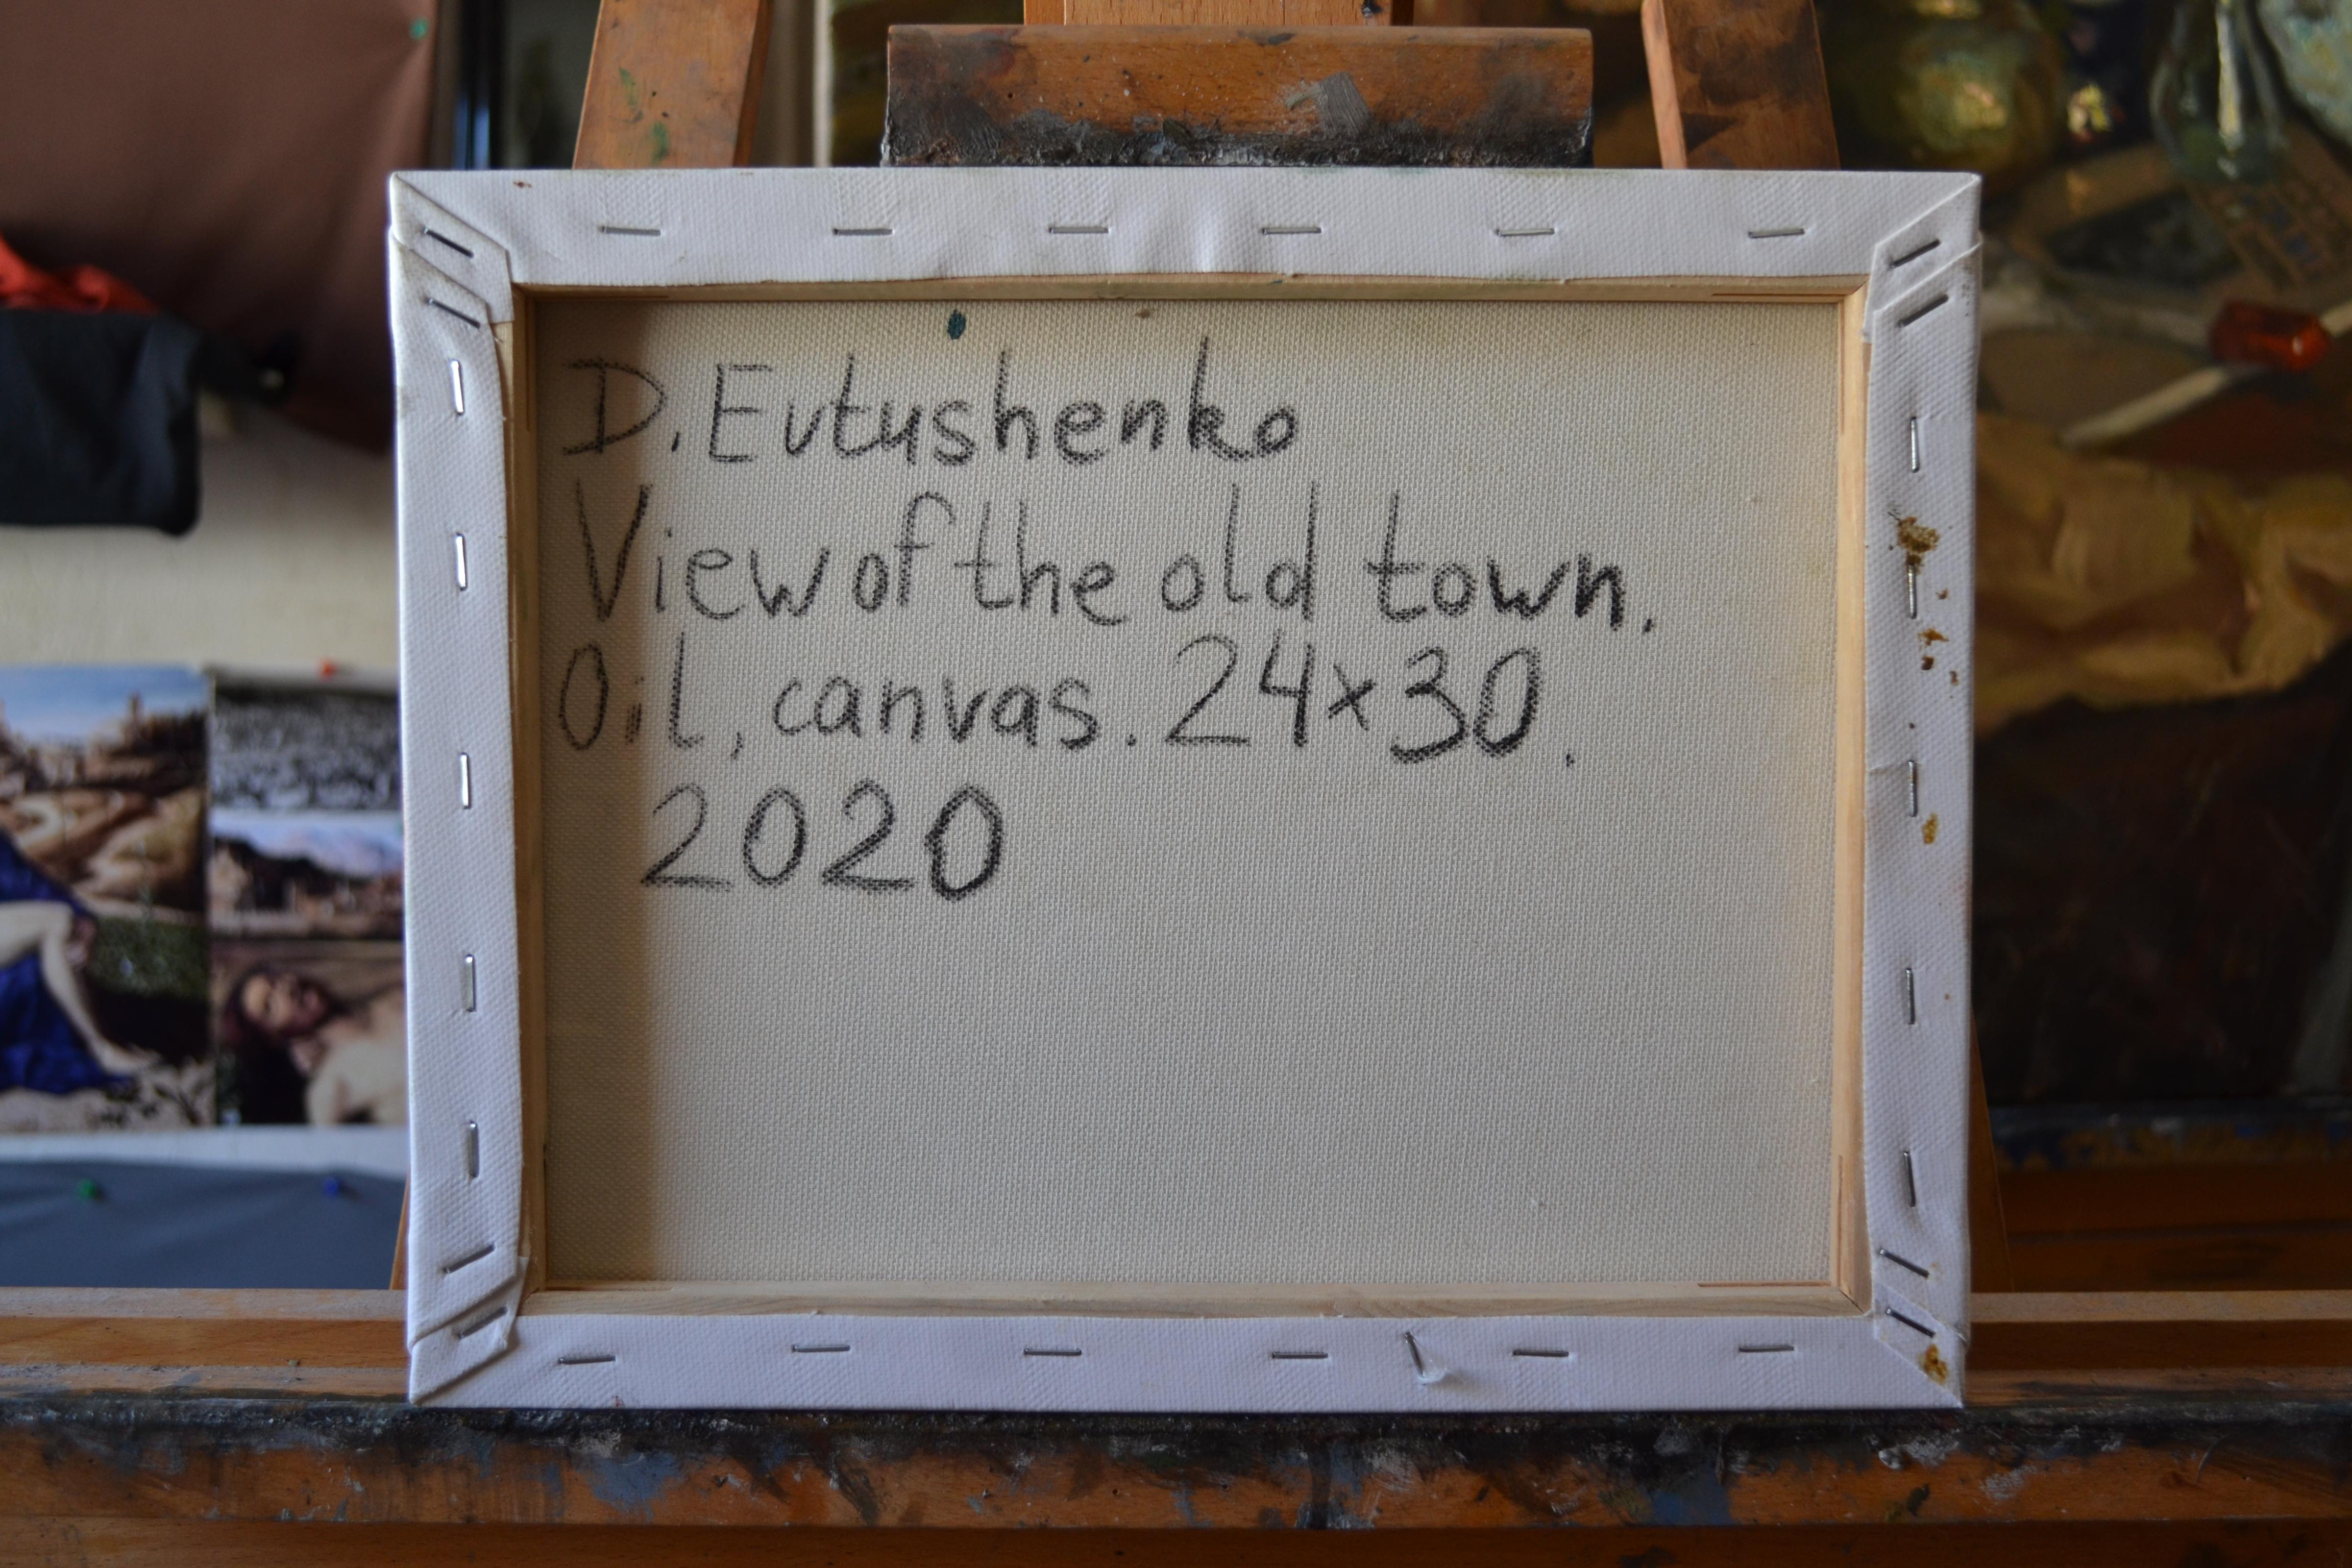 D. Evtushenko
View of the old town.
Oil, canvas. 24×30.
2020